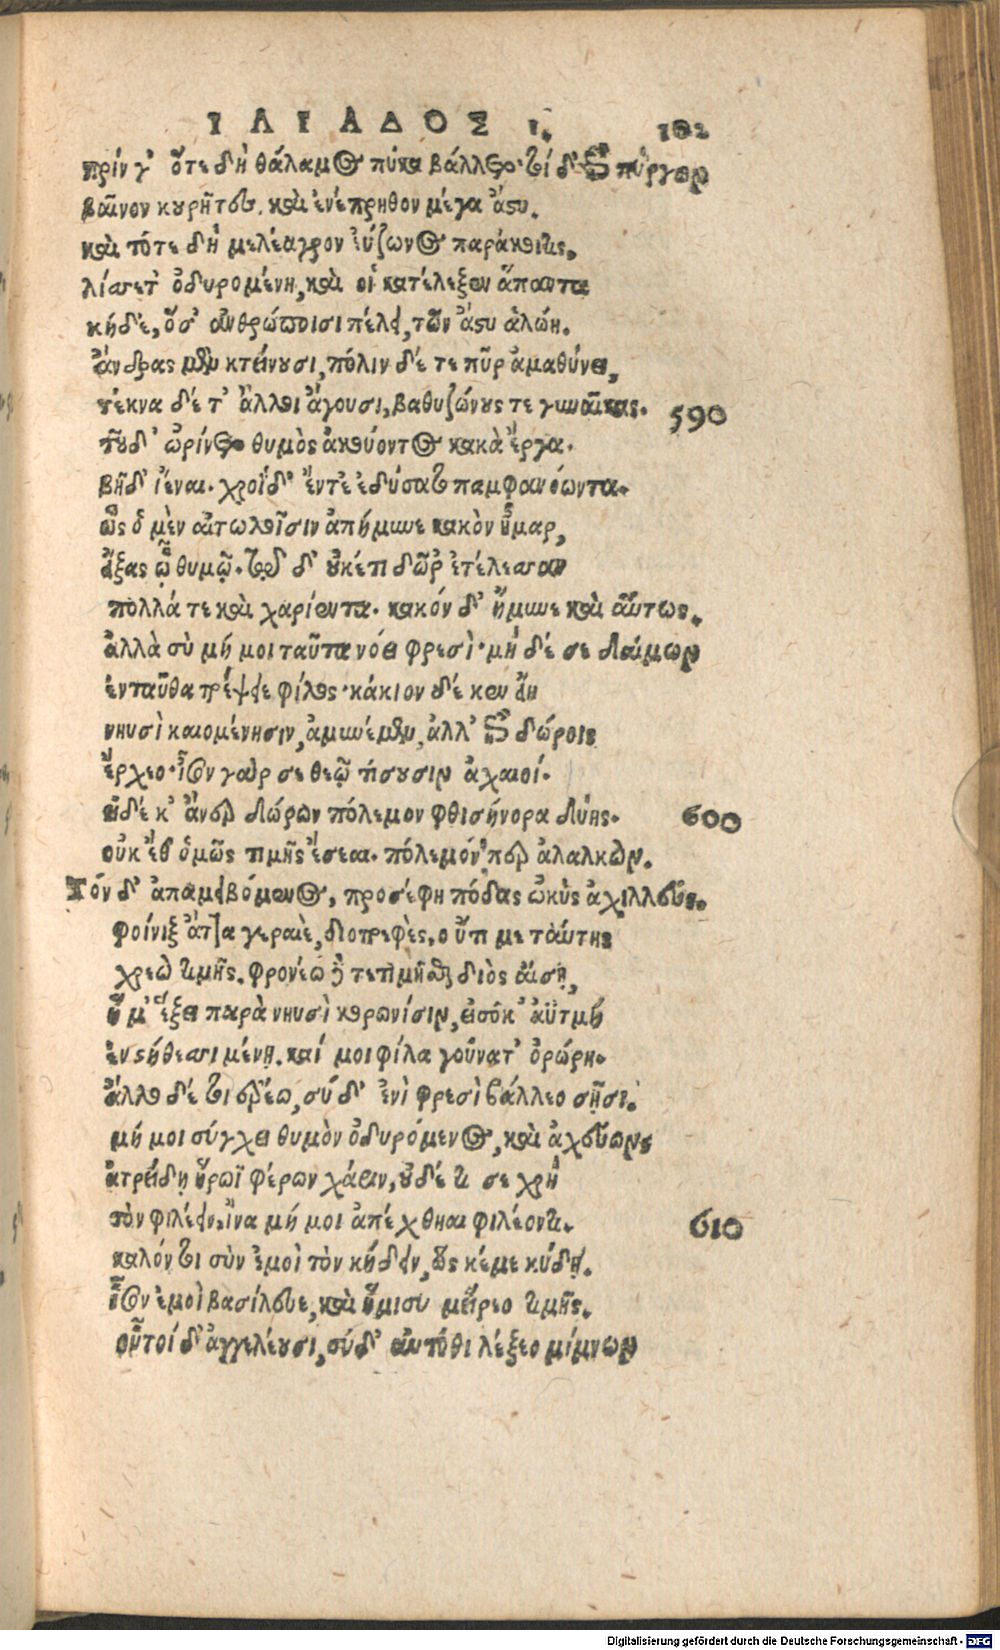 ΙΛΙΑΔΟΣ Ι. 102
πρίν γ' ὅτε δὴ θάλαμος πύκα βάλλετο· τοὶ δ' ἐπὶ πύργων
βαῖνον κουρῆτες. καὶ ἐνέπρηθον μέγα ἄστυ.
καὶ τότε δὴ μελέαγρον ἐύζωνος παράκοιτις.
λίσσετ' ὀδυρομένη, καὶ οἱ κατέλεξεν ἅπαντα
κήδε, ὅσ' ἀνθρώποισι πέλει, τῶν ἄστυ ἁλώη.
ἄνδρας μὲν κτείνουσι, πόλιν δέ τε πῦρ ἀμαθύνει,
τέκνα δέ τ' ἄλλοι ἄγουσι, βαθυζώνους τε γυναῖκας. 590
τοῦ δ' ὠρίνετο θυμὸς ἀκούοντος κακὰ ἔργα.
βῆ δ' ἰέναι. χροῒ δ' ἔντε' ἐδύσατο παμφανόωντα.
ὣς ὁ μὲν αἰτωλοῖσιν ἀπήμυνε κακὸν ἦμαρ,
εἴξας ᾧ θυμῷ. τῷ δ' οὐκέτι δῶρ' ἐτέλεσσαν
πολλά τε καὶ χαρίεντα. κακόν δ' ἤμυνε καὶ αὔτως.
ἀλλὰ σὺ μή μοι ταῦτα νόει φρεσὶ· μὴ δέ σε δαίμων
ἐνταῦθα τρέψειε φίλος· κάκιον δέ κεν εἴη
νηυσὶ καιομένῃσιν, ἀμυνέμεν, ἀλλ' ἐπὶ δώροις
ἔρχεο· ἶσον γάρ σε θεῷ τίσουσιν ἀχαιοί.
εἰ δέ κ' ἄνευ δώρων πόλεμον φθισήνορα δύῃς. 600
οὐκ ἔθ' ὁμῶς τιμῆς ἔσεαι. πόλεμόν περ ἀλαλκών.
Τόν δ' ἀπαμειβόμενος, προσέφη πόδας ὠκὺς ἀχιλλεύς.
φοίνιξ ἄττα γεραιὲ, διοτρεφὲς. οὔτι με ταύτης
χρεὼ τιμῆς. φρονέω δὲ τετιμῆσθαι διὸς αἴσῃ,
ἥ μ' ἕξει παρὰ νηυσὶ κορωνίσιν, εἰσόκ' ἀϋτμὴ
ἐν στήθεσσι μένῃ. καί μοι φίλα γούνατ' ὀρώρῃ.
ἄλλο δέ τοι ἐρέω, σύ δ' ἐνὶ φρεσὶ βάλλεο σῇσι.
μή μοι σύγχει θυμὸν ὀδυρόμενος, καὶ ἀχεύων,
ἀτρείδῃ ἥρωϊ φέρων χάριν, οὐδέ τι σε χρὴ
τὸν φιλέειν. ἵνα μή μοι ἀπέχθηαι φιλέοντι. 610
καλόν τοι σὺν ἐμοὶ τὸν κήδειν, ὅς κέ με κήδῃ.
ἶσον ἐμοὶ βασίλευε, καὶ ἥμισυ μείρεο τιμῆς.
οὗτοί δ' ἀγγελέουσι, σύ δ' αὐτόθι λέξεο μίμνων
Digitalisierung gefördert durch die Deutsche Forschungsgemeinschaft - DFG